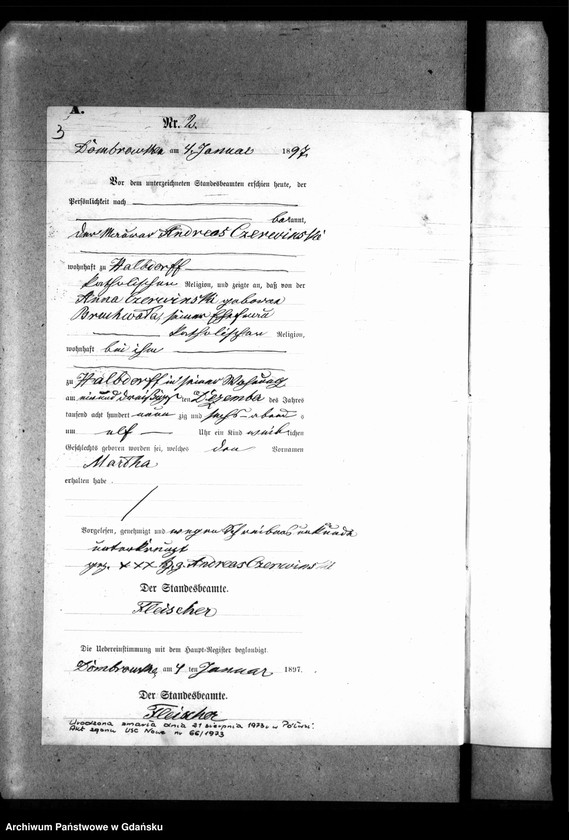 A.
Nr. 2.
3
Dombrowken am 4. Januar 1897.
Vor dem unterzeichneten Standesbeamten erschien heute, der
Persönlichkeit nach
bekannt,
der Maurer Andreas Czerwinski
wohnhaft zu Halbdorff
katholischen Religion, und zeigte an, daß von der
Anna Czerwinski geborene
seiner Ehefrau
katholischen Religion,
wohnhaft bei ihm
zu Halbdorff in seiner Wohnung
am einunddreißigsten Dezember des Jahres
tausend acht hundert neunzig und sechs abends
um elf Uhr ein Kind weiblichen
Geschlechts geboren worden sei, welches den Vornamen
Martha
erhalten habe.
Vorgelesen, genehmigt und wegen Schreibensunkunde
unterkreuzt
gez. xxx Andreas Czerwinski
Der Standesbeamte.
Fleischer
Die Uebereinstimmung mit dem Haupt-Register beglaubigt
am 4ten Januar 1897.
Der Standesbeamte.
Fleischer
Urodzona zmarła dnia 21 sierpnia 1973 r. w
Akt zgonu USC Nowe nr 66/1973
Archiwum Państwowe w Gdańsku